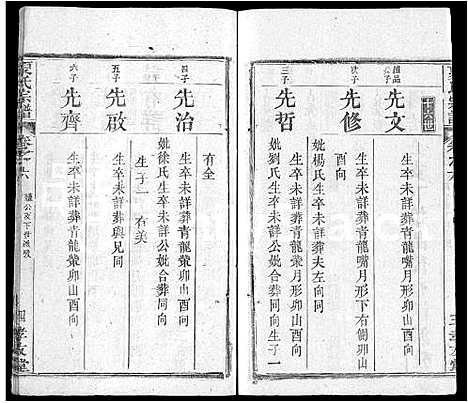 先文
生卒未詳葬青龍嘴月形卯山
酉向
次子
先修
生卒未詳葬青龍嘴月形下右側卯山
酉向
妣楊氏生卒未詳葬夫左向同
三子
先哲
生卒未詳葬青龍彙卯山酉向
妣劉氏生卒未詳公妣合葬同向生子一
有全
四子
先治
生卒未詳葬青龍彙卯山酉向
妣徐氏生卒未詳公妣合葬同向
生子一 有美
五子
先啟
生卒未詳葬與兄同
六子
先齊
生卒未詳葬青龍彙卯山酉向
氏宗譜
卷之六